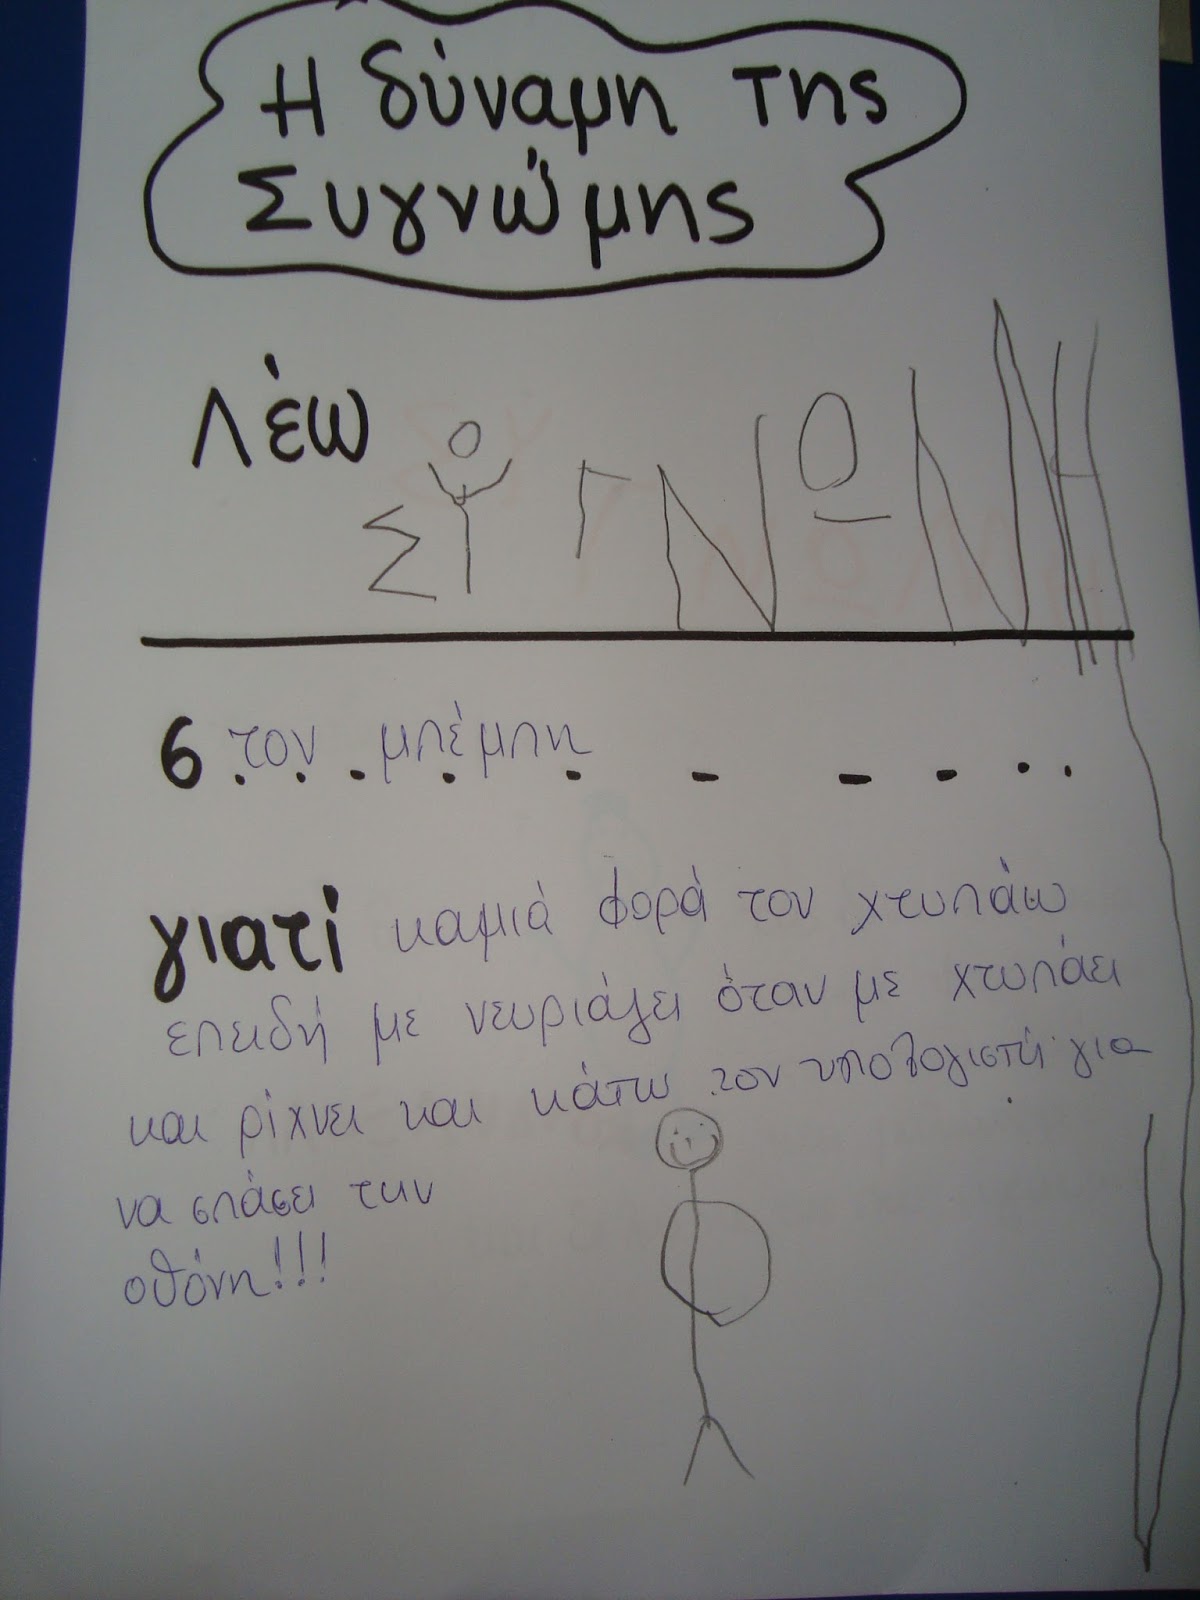 Η δύναμη της
Συγνώμης
Λέω ΣΥΓΝΩΜΗ
σ τον μπέμπη
γιατί καμιά φορά τον χτυπάω
επειδή με νευριάζει όταν με χτυπάει
και ρίχνει και κάτω τον υπολογιστή για
να σπάσει την
οθόνη!!!